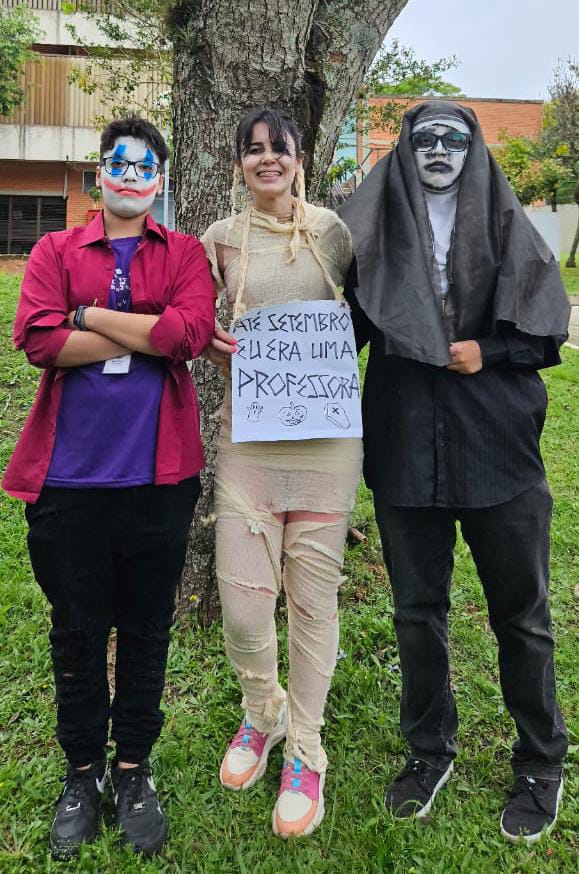 ATÉ SETEMBRO
EU ERA UMA
PROFESSORA